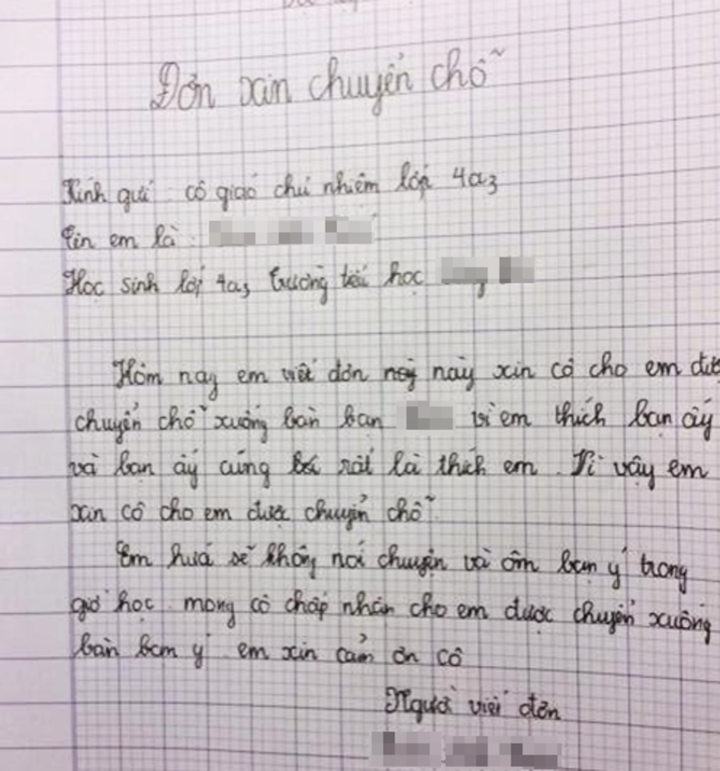 Đơn xin chuyển chỗ
Kính gửi: cô giáo chủ nhiệm lớp 4a3
Tên em là:
Học sinh lớp 4a3 trường tiểu học
Hôm nay em viết đơn này xin cô cho em đượ
chuyển chỗ xuống bàn bạn vì em thích bạn ấy
và bạn ấy cũng rất là thích em. Vì vậy em
xin cô cho em được chuyển chỗ
Em hứa sẽ không nói chuyện và ôm bạn ý trong
giờ học mong cô chấp nhận cho em được chuyển xuống
bàn bạn ý em xin cảm ơn cô
Người viết đơn